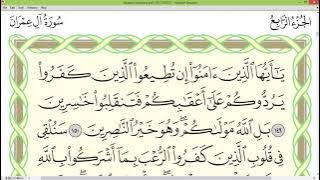 الجزء الرابع
سورة آل عمران
يَٰٓأَيُّهَا ٱلَّذِينَ ءَامَنُوٓا۟ إِن تُطِيعُوا۟ ٱلَّذِينَ كَفَرُوا۟
يَرُدُّوكُمْ عَلَىٰٓ أَعْقَٰبِكُمْ فَتَنقَلِبُوا۟ خَٰسِرِينَ
١٤٩ بَلِ ٱللَّهُ مَوْلَىٰكُمْ وَهُوَ خَيْرُ ٱلنَّٰصِرِينَ ١٥٠ سَنُلْقِى
فِى قُلُوبِ ٱلَّذِينَ كَفَرُوا۟ ٱلرُّعْبَ بِمَآ أَشْرَكُوا۟ بِٱللَّهِ